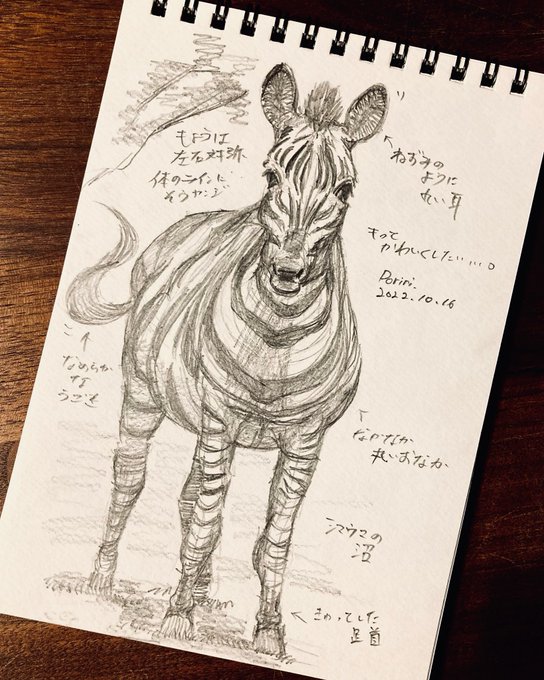 もようは
左右対称
体のラインに
そうカンジ
ねずみの
ように
丸い耳
もって
かわいくしたい...。
Poriri.
2022.10.16
なめらか
な
うごき
なかなか
丸いおなか
シマウマの
沼
きゅっとした
足首